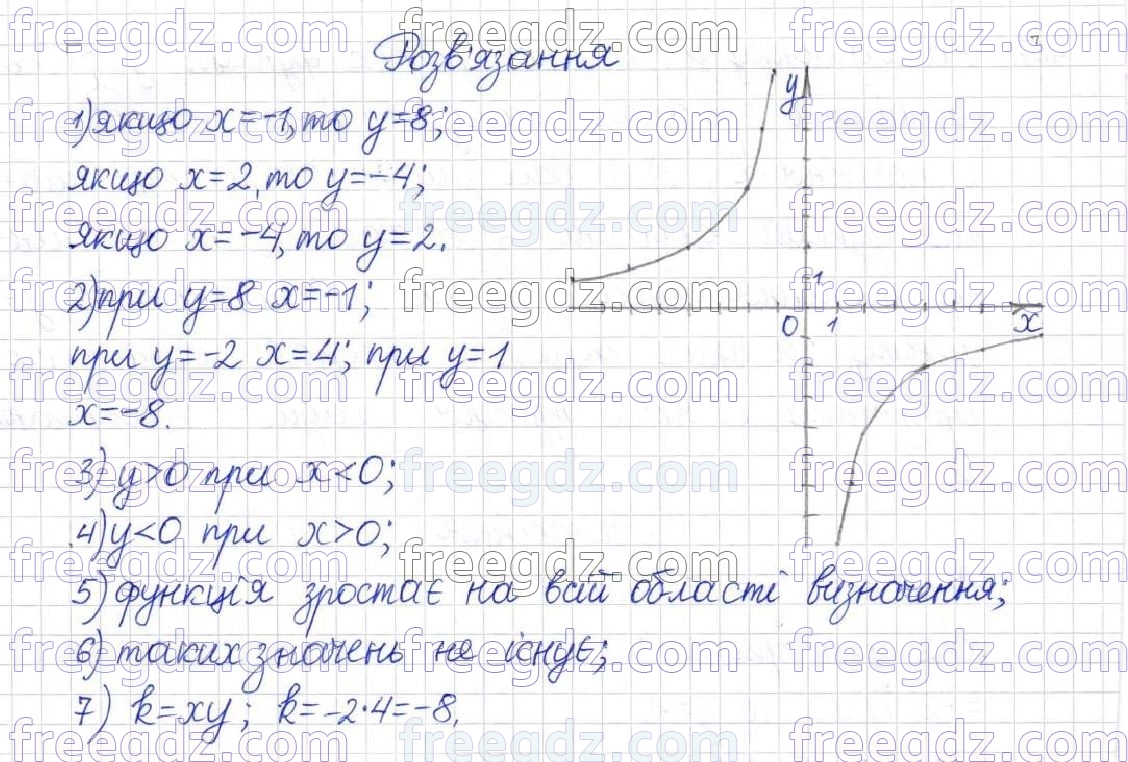 Розв'язання
1) якщо x=-1, то y=8;
якщо x=2, то y=-4;
якщо x=-4, то y=2.
2) при y=8 x=-1;
при y=-2 x=4; при y=1
x=-8.
3) y>0 при x<0;
4) y<0 при x>0;
5) функція зростає на всій області визначення;
6) таких значень не існує;
7) k=xy; k=-2·4=-8.
y
1
0 1
x
freegdz.com freegdz.com freegdz.com
freegdz.com freegdz.com freegdz.com
freegdz.com freegdz.com freegdz.com
freegdz.com freegdz.com freegdz.com
freegdz.com freegdz.com freegdz.com
freegdz.com freegdz.com freegdz.com
freegdz.com freegdz.com freegdz.com
freegdz.com freegdz.com freegdz.com
freegdz.com freegdz.com freegdz.com